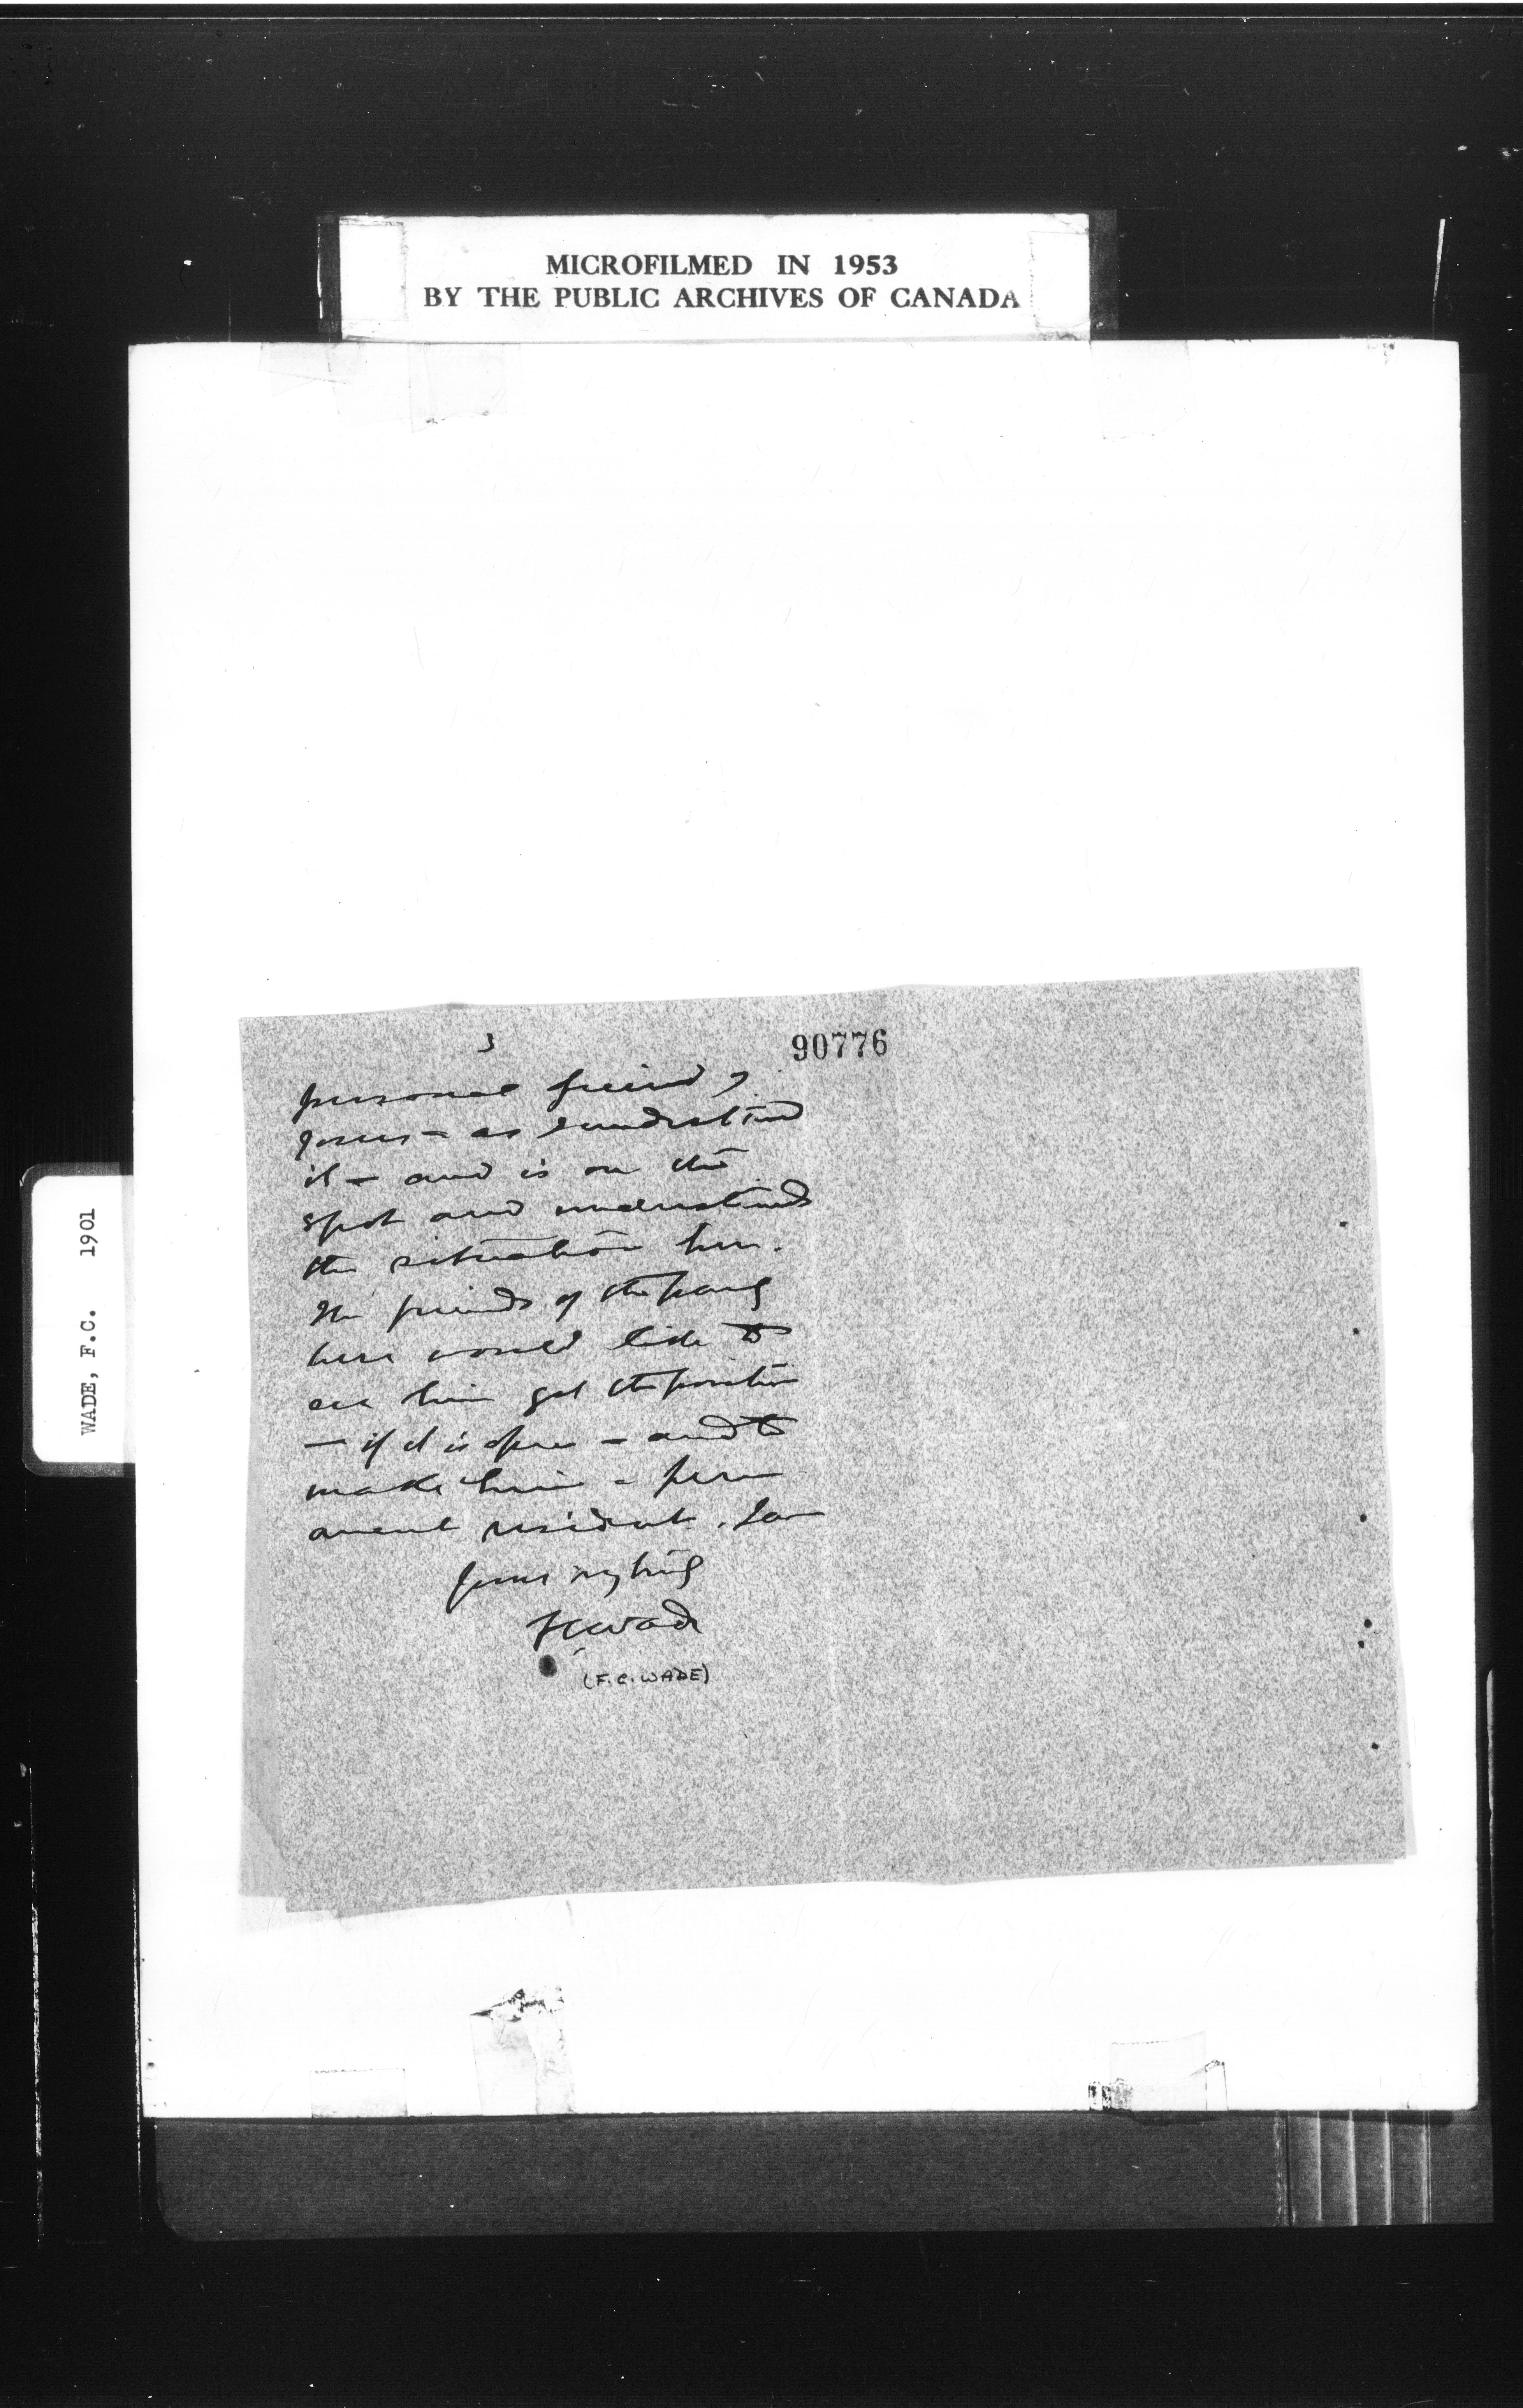 MICROFILMED IN 1953
BY THE PUBLIC ARCHIVES OF CANADA
WADE, F.C. 1901
3
90776
personal friend of
yours - as I understand
it - and is on the
spot and understands
the situation here.
The friends of the party
here would like to
see him get the position
- if it is open - and to
make him a perm
anent resident. I am
yours very truly
FCWade
(F.C. WADE)